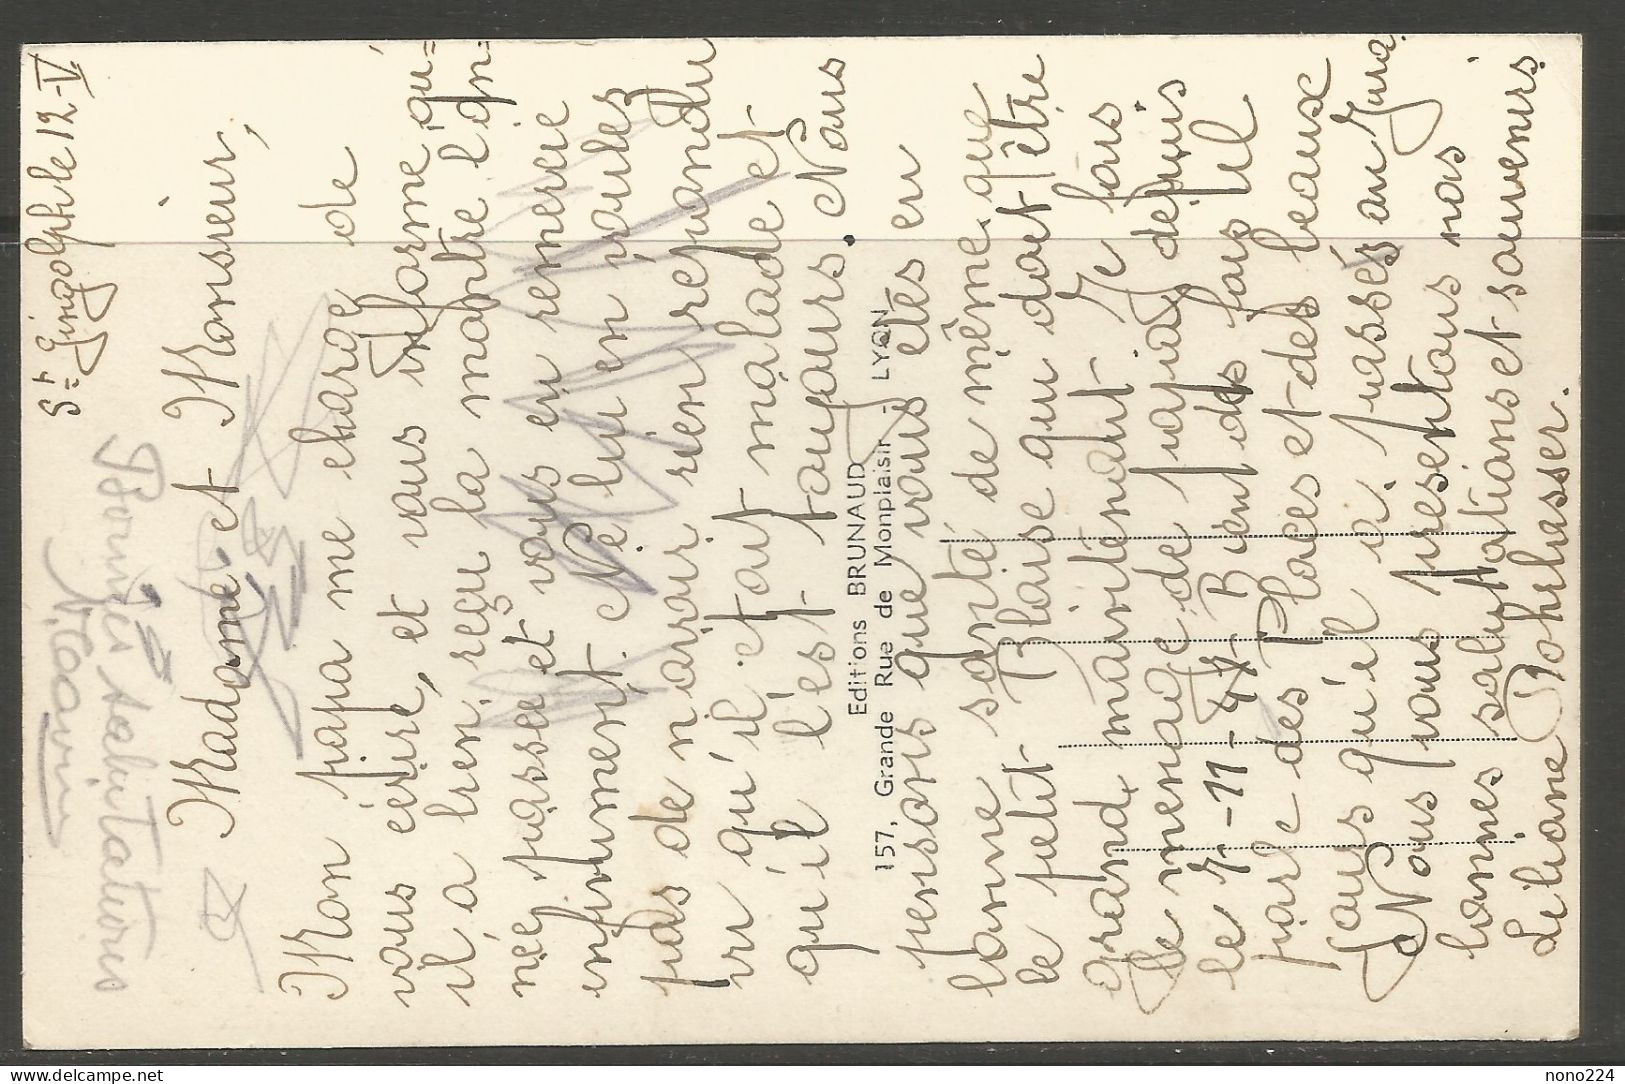 St Gingolph le 12-V
Madame et Monsieur,
Mon papa me charge de
vous écrire, et vous informe qu'
il a bien reçu la montre ign=
née passée et vous en remercie
infiniment. Ne lui en voulez
pas de n'avoir rien repondu
vu qu'il etait malade et
qu'il l'est toujours. Nous
pensons que vous etes en
bonne santé de même que
le petit Blaise qui doit être
grand maintenant. Je fais
le menage de papa depuis
le 7-11-47. Bien des fois il
parle des Places et des beaux
jours qu'il a passés au Jura.
Nous vous presentons nos
bonnes salutations et souvenirs.
Liliane Bohrhasser.
Bonnes salutations
Editions BRUNAUD
157, Grande Rue de Monplaisir - LYON
nono224
delcampe.net